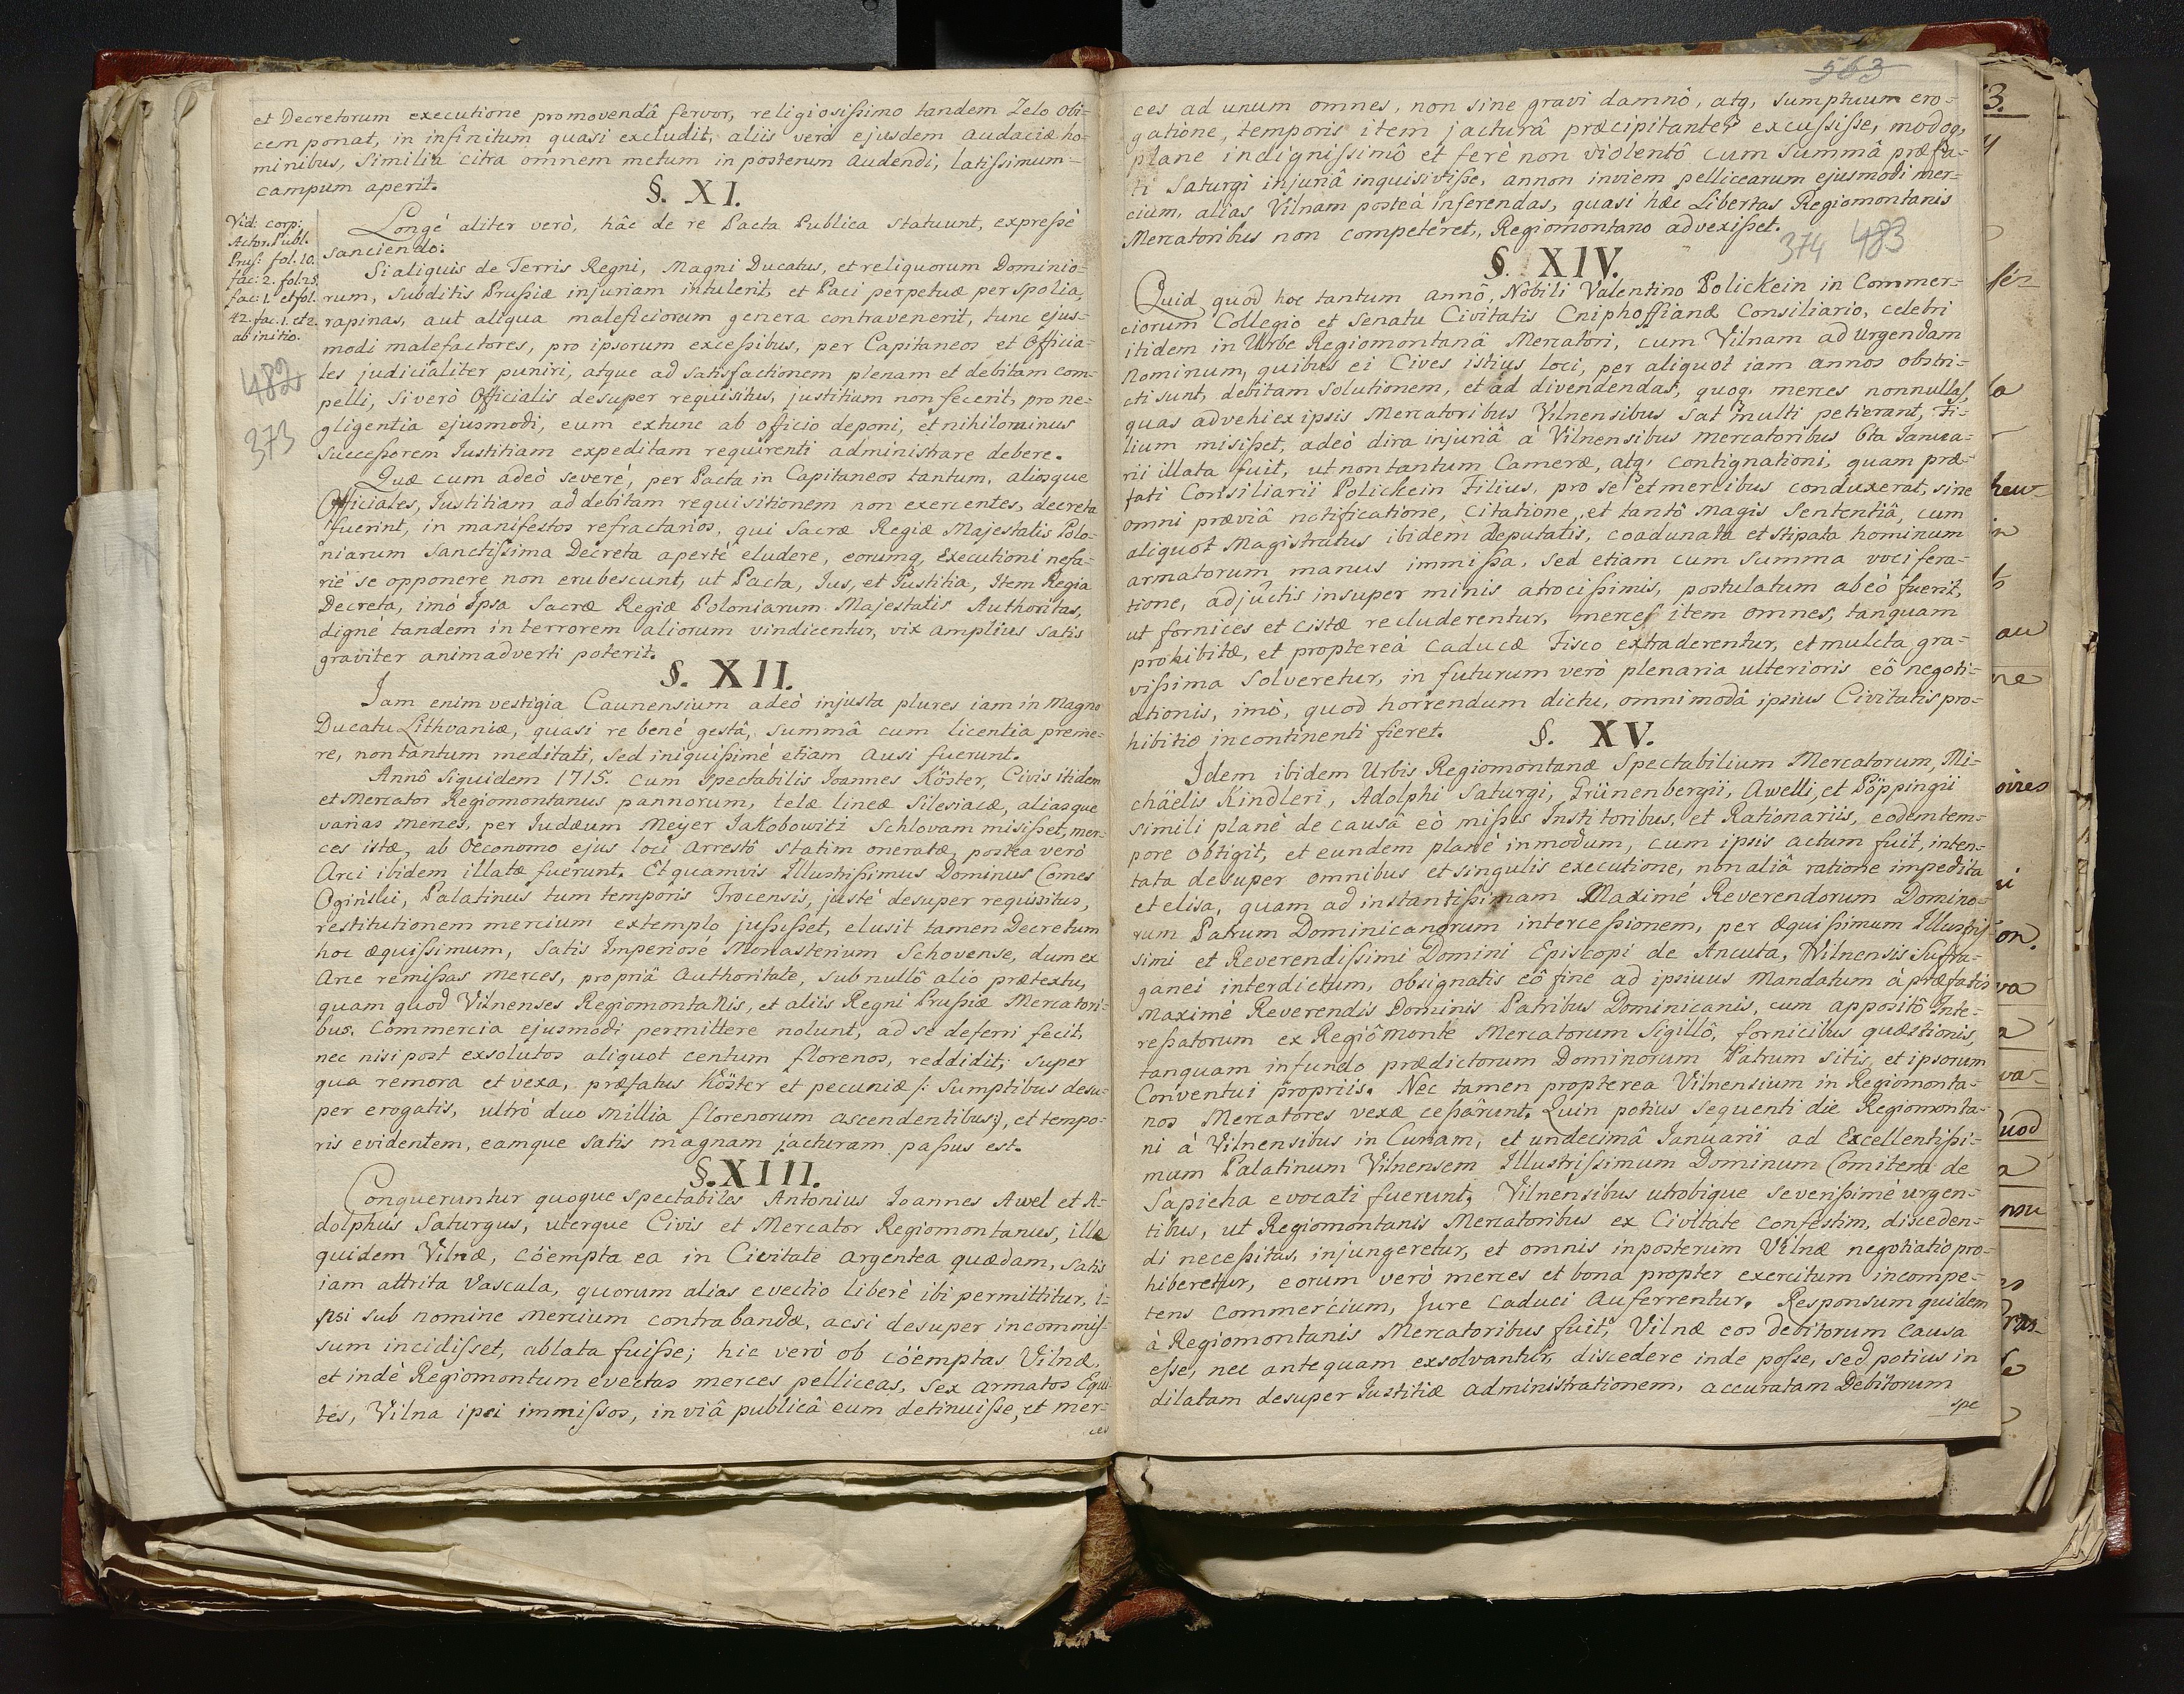 et Decretorum executione promovendâ fervor, religiosißimo tandem Zelo obi=
cem ponat, in infinitum quasi excludit, aliis verò ejusdem audaciæ ho=
minibus, similia citra omnem metum in posterum audendi, latißimum=
campum aperit.
§. XI.
Vid: corp:
Actor. Publ.
Pruß: fol. 20.
fac: 2. fol: 25.
fac: 1. et fol.
42. fac. 1. et 2.
ab initio.
482
373
Longé aliter verò, hâc de re Pacta Publica statuunt, expreßè
sanciendo:
Si aliquis de Terris Regni, Magni Ducatus, et reliquorum Dominio=
rum, subditis Prußiæ injuriam intulerit, et Paci perpetuæ per spolia,
rapinas, aut aliqua maleficiorum genera contravenerit, tunc ejus=
modi malefactores, pro ipsorum exceßibus, per Capitaneos et Officia=
les judicialiter puniri, atque ad satisfactionem plenam et debitam com=
pelli, si verò Officialis desuper requisitus, justitium non fecerit, pro ne=
gligentia ejusmodi, eum extunc ab officio deponi, et nihilominus
succeßorem Justitiam expeditam requirenti administrare debere.
Quæ cum adeò severé, per Pacta in Capitaneos tantum, aliosque
Officiales, Justitiam ad debitam requisitionem non exercentes, decreta
fuerint, in manifestos refractarios, qui Sacræ Regiæ Majestatis Polo=
niarum Sanctißima Decreta apertè eludere, eorumq, Executioni nefa=
rié se opponere non erubescunt, ut Pacta, Jus, et Justitia, Item Regia
Decreta, imò Ipsa Sacræ Regiæ Poloniarum Majestatis Authoritas,
digné tandem in terrorem aliorum vindicentur, vix amplius satis
graviter animadverti poterit.
§. XII.
Jam enim vestigia Caunensium adeò injusta plures iam in Magno
Ducatu Lithvaniæ, quasi re bené gestâ, summâ cum licentia preme=
re, non tantum meditati, sed iniquißimé etiam ausi fuerunt.
Annô siquidem 1715. cum Spectabilis Joannes Köster, Civis itidem
et Mercator Regiomontanus pannorum, telæ lineæ Silesiacæ, aliasque
varias merces, per Judæum Meyer Jakobowitz Schlovam misißet, mer=
ces istæ, ab Oeconomo ejus loci arrestô statim oneratæ, postea verò
Arci ibidem illatæ fuerunt. Et quamvis Illustrißimus Dominus Comes
Oginski, Palatinus tum temporis Trocensis, justé desuper requisitus,
restitutionem mercium extemplo jußißet, elusit tamen Decretum
hoc æquißimum, satis Imperiosé Monasterium Schovense, dum ex
Arce remißas merces, propriâ authoritate, sub nullô alio prætextu,
quam quod Vilnenses Regiomontanis, et aliis Regni Prußiæ Mercatori=
bus. Commercia ejusmodi permittere nolunt, ad se deferri fecit,
nec nisi post exsolutos aliquot centum florenos, reddidit; super
qua remora et vexa, præfatus Köster et pecuniæ /: sumptibus desu=
per erogatis, ultrò duo Millia florenorum ascendentibus :/, et tempo=
ris evidentem, eamque satis magnam jacturam paßus est.
§. XIII.
Conqueruntur quoque spectabiles Antonius Joannes Awel et A=
dolphus Saturgus, uterque Civis et Mercator Regiomontanus, ille
quidem Vilnæ, cöempta ea in Civitate argentea quædam, satis
iam attrita vascula, quorum alias evectio liberè ibi permittitur, i=
psi sub nomine mercium contrabandæ, acsi desuper in commis=
sum incidißet, ablata fuiße; hic verò ob cöemptas Vilnæ,
et indè Regiomontum evectas merces pelliceas, sex armatos Equi=
tes, Vilna ipsi immißos, in viâ publicâ eum detinuiße, et mer=
ces
563
ces ad unum omnes, non sine gravi damnô, atq, sumptuum ero=
gatione, temporis item jacturâ præcipitanter excußiße, modoq,
plane indignißimô et ferè non violentô cum summâ præfa=
ti Saturgi injuriâ inquisiviße, annon inviem pellicearum ejusmodi mer=
cium, alias Vilnam posteà inferendas, quasi hæc Libertas Regiomontanis
Mercatoribus non competeret, Regiomontano advexißet.
374 483
§. XIV.
Quid quod hoc tantum annô, Nobili Valentino Polickein in Commer=
ciorum Collegio et Senatu Civitatis Cniphoffianæ Consiliario, celebri
itidem in Urbe Regiomontanâ Mercatori, cum Vilnam ad urgendam
Nominum, quibus ei Cives istius loci, per aliquot iam annos obstri=
cti sunt, debitam solutionem, et ad divendendas, quoq, merces nonnullas,
quas advehi ex ipsis Mercatoribus Vilnensibus sat multi petierant, Fi=
lium misißet, adeò dira injuriâ à Vilnensibus mercatoribus 6ta Janua=
rii illata fuit, ut non tantum Cameræ, atq, contignationi, quam præ=
fati Consiliarii Polickein Filius, pro se et mercibus conduxerat, sine
omni præviâ notificatione, citatione, et tantô magis Sententiâ, cum
aliquot Magistratus ibidem Deputatis, coadunata et stipata hominum
armatorum manus immißa, sed etiam cum summa vocifera=
tione, adjuctis insuper minis atrocißimis, postulatum ab eò fuerit,
ut fornices et cistæ recluderentur, merces item omnes, tanquam
prohibitæ, et proptereà caducæ Fisco extraderentur, et mulcta gra=
vißima solveretur, in futurum verò plenaria ulterioris eô negoti=
ationis, imò, quod horrendum dictu, omnimodâ ipsius Civitatis pro=
hibitio incontinenti fieret.
§. XV.
Idem ibidem Urbis Regiomontanæ Spectabilium Mercatorum, Mi=
chäelis Kindleri, Adolphi Saturgi, Grünenbergii, Awelli, et Pöppingii
simili planè de causâ eò mißis Institoribus, et Rationariis, eodem tem=
pore obtigit, et eundem planè inmodum, cum ipsis actum fuit, inten=
tata desuper omnibus et singulis executione, non aliâ ratione impedita
et elisa, quam ad instantißimam Maximé Reverendorum Domino=
rum Patrum Dominicanorum interceßionem, per æquißimum Illustris=
simi et Reverendißimi Domini Episcopi de Ancuta, Wilnensis Sufra=
ganei interdictum, obsignatis eô fine ad ipsiuus mandatum à præfatis
Maximè Reverendis Dominis Patribus Dominicanis, cum appositô Inte=
reßatorum ex Regiômonte Mercatorum Sigillô, fornicibus quæstionis,
tanquam in fundo prædictorum Dominorum Patrum sitis, et ipsorum
Conventui propriis. Nec tamen propterea Vilnensium in Regiomonta=
nos Mercatores vexæ ceßârunt. Quin potius sequenti die Regiomonta=
ni à Vilnensibus in Curiam, et undecimâ Januarii ad Excellentißi=
mum Palatinum Vilnensem Illustrißimum Dominum Comitem de
Sapieha evocati fuerunt, Vilnensibus utrobique severißimè urgen=
tibus, ut Regiomontanis Mercatoribus ex Civitate confestim, disceden=
di neceßitas, injungeretur, et omnis inposterum Vilnæ negotiatio pro=
hiberetur, eorum verò merces et bona propter exercitum incompe=
tens commercium, Jure caduci auferrentur. Responsum quidem
à Regiomontanis Mercatoribus fuit, Vilnæ eos debitorum causa
eße, nec antequam exsolvantur, discedere inde poße, sed potius in
dilatam desuper Justitiæ administrationem, accuratam Debitorum
spe